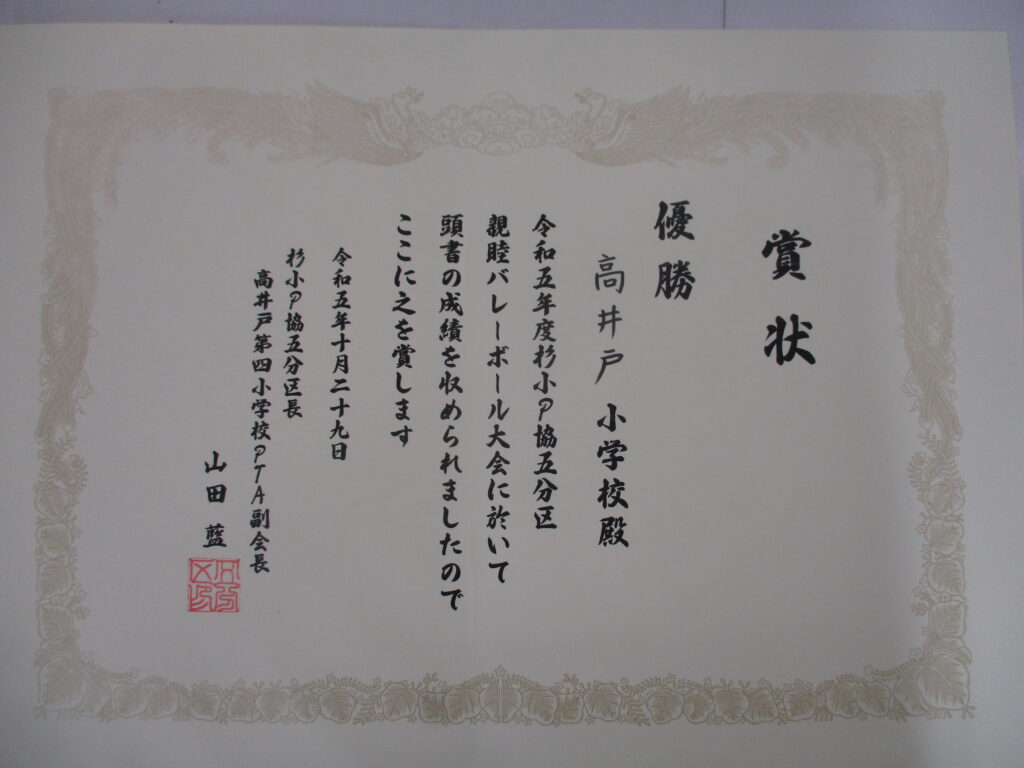 賞状
優勝
高井戸小学校殿
令和五年度杉小P協五分区
親睦バレーボール大会に於いて
頭書の成績を収められましたので
ここに之を賞します
令和五年十月二十九日
杉小P協五分区長
高井戸第四小学校PTA副会長
山田藍